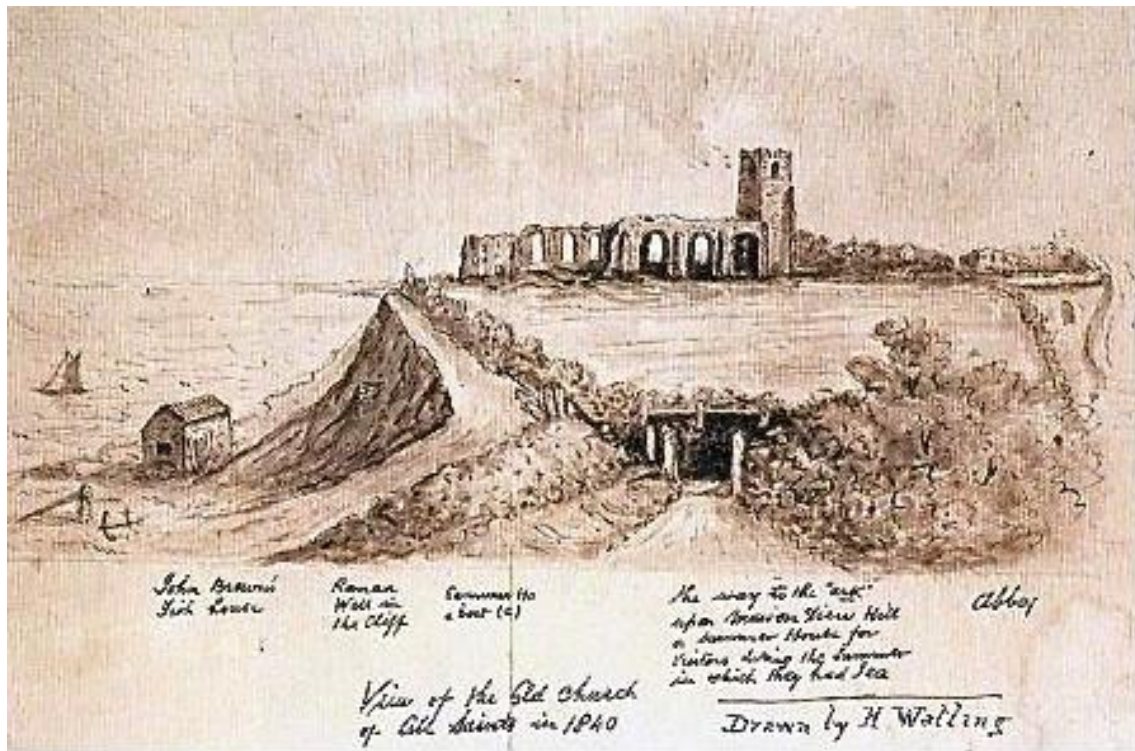 John Brown's
Fish house
Roman
Well in
the Cliff
Summer Ho
a boat
the way to the "ark"
upon View Hill
a Summer House for
Visitors during the Summer
in which they had Tea
Abbey
View of the Old Church
of All Saints in 1840
Drawn by H Watling